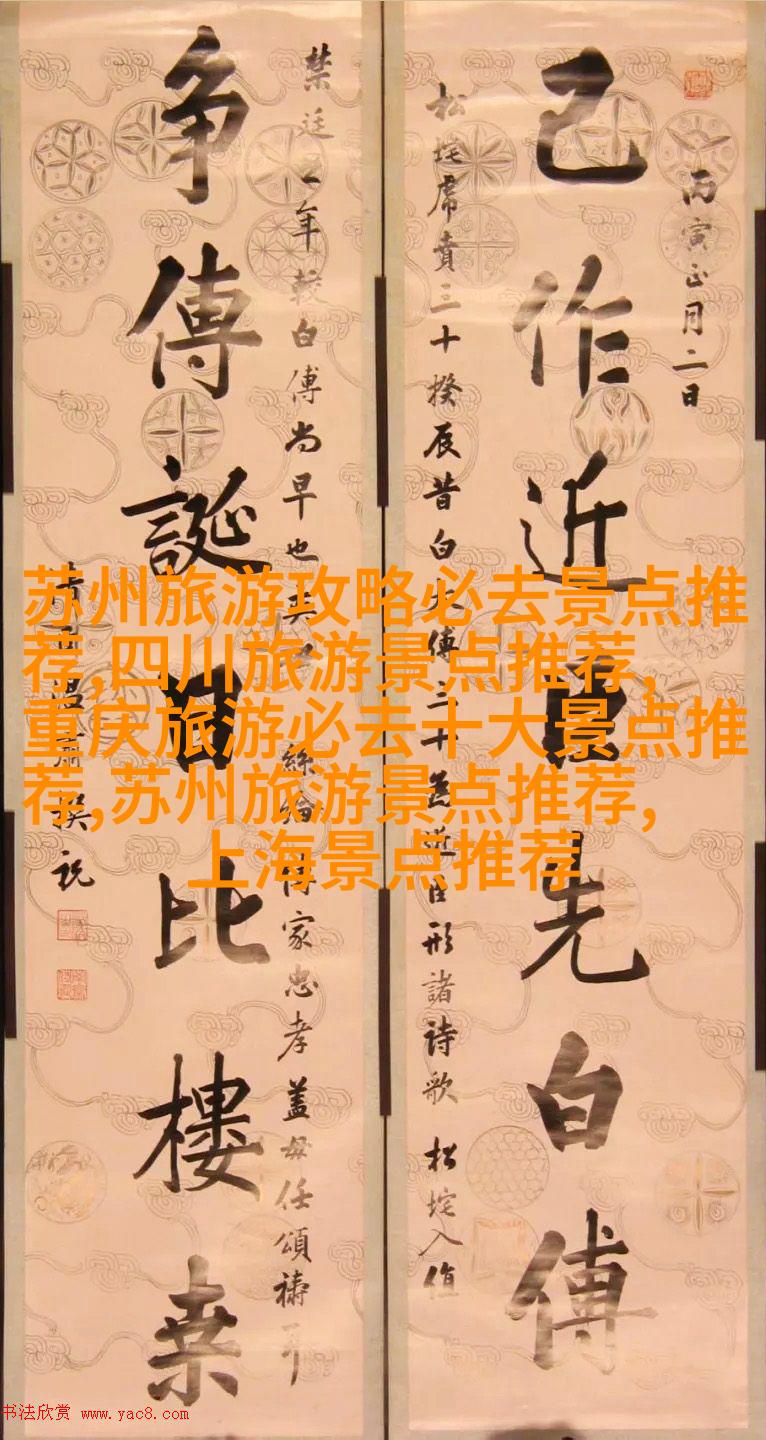 己作近臣先白傅
丙寅正月二日
松垞席賁三十揆辰昔白太傅三十為近臣形諸詩歌 松垞入值
争傳誕日比樓桑
禁廷 年較白傅尚早也
絲綸 傳家忠孝蓋毋任頌禱
撰 祝
苏州旅游攻略必去景点推
荐,四川旅游景点推荐,
重庆旅游必去十大景点推
荐,苏州旅游景点推荐,
上海景点推荐
书法欣赏 www.yac8.com